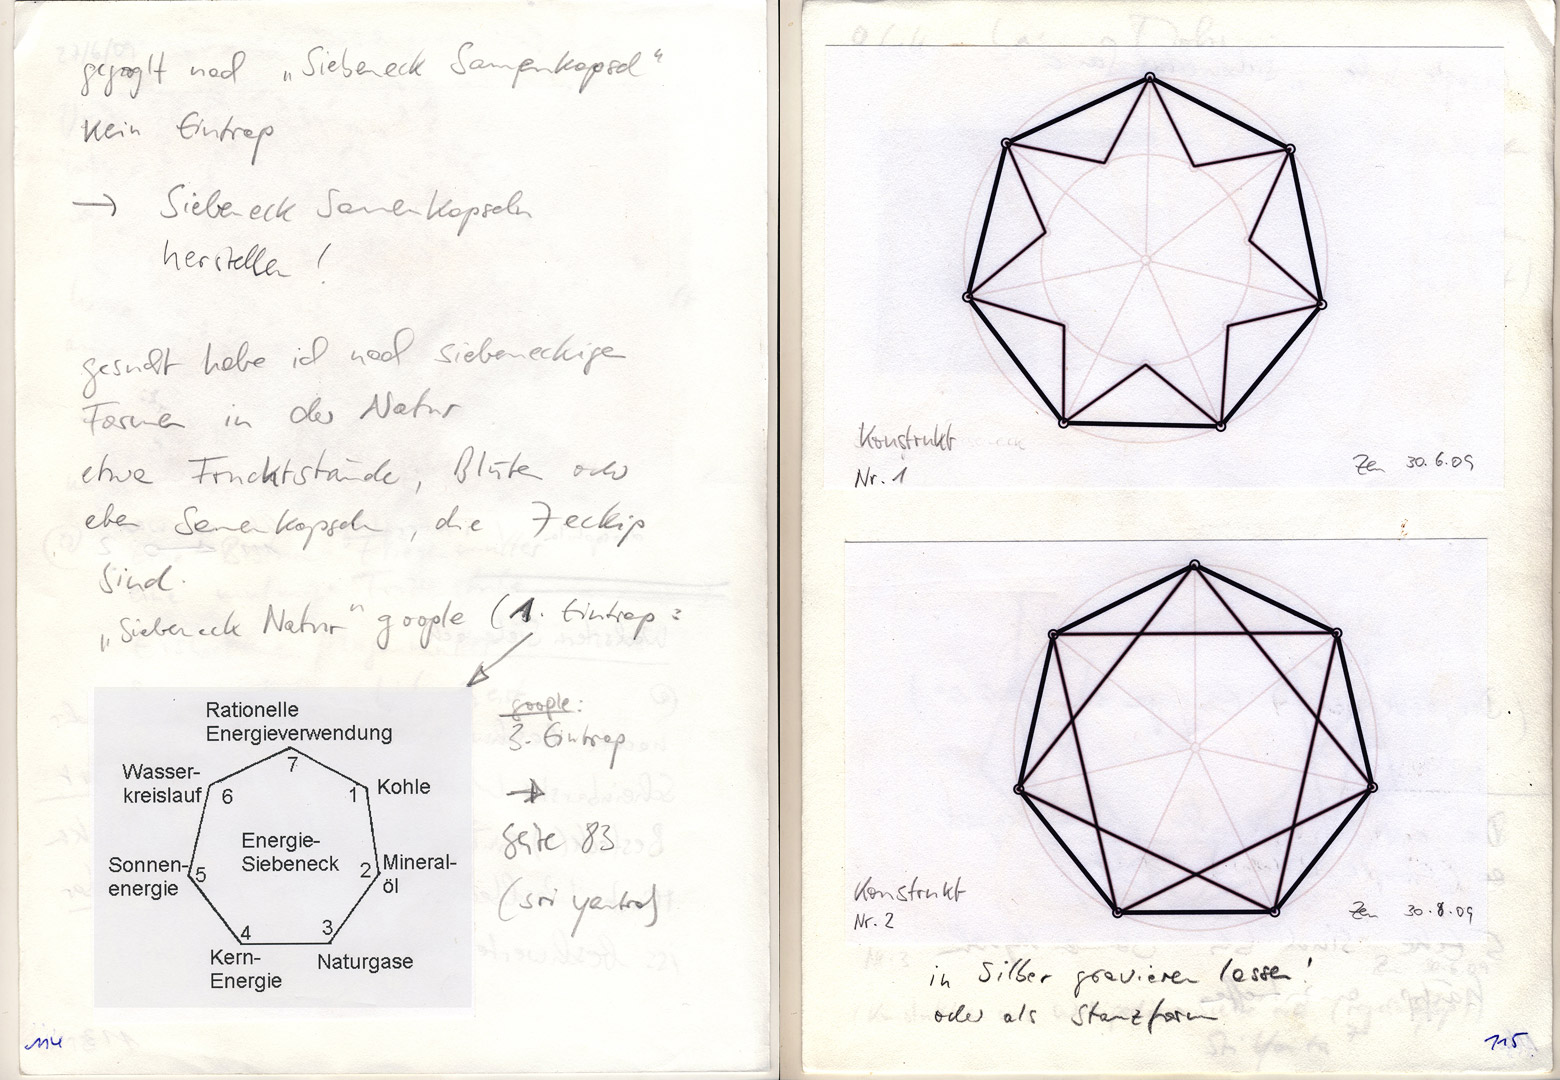 gegooglt nach „Siebeneck Samenkapsel“
Kein Eintrag
→ Siebeneck Samenkapseln
herstellen!
gesucht habe ich nach siebeneckigen
Formen in der Natur
etwa Fruchtstände, Blüten oder
eben Samenkapseln, die 7eckig
sind.
„Siebeneck Natur“ google (1. Eintrag:
Rationelle
Energieverwendung
7
Wasser-
kreislauf
6
1
Kohle
Energie-
Siebeneck
Sonnen-
energie
5
2
Mineral-
öl
4
3
Kern-
Energie
Naturgase
google:
3. Eintrag
→
Seite 83
(sri yantra)
114
Konstrukt
Nr. 1
Zen 30.6.09
Konstrukt
Nr. 2
Zen 30.8.09
in Silber gravieren lassen!
oder als Stanzform
115